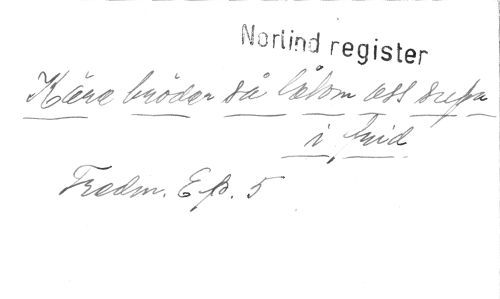 Norlind register
Käre bröder så låtom oss supa
i frid
Fredm. Ep. 5